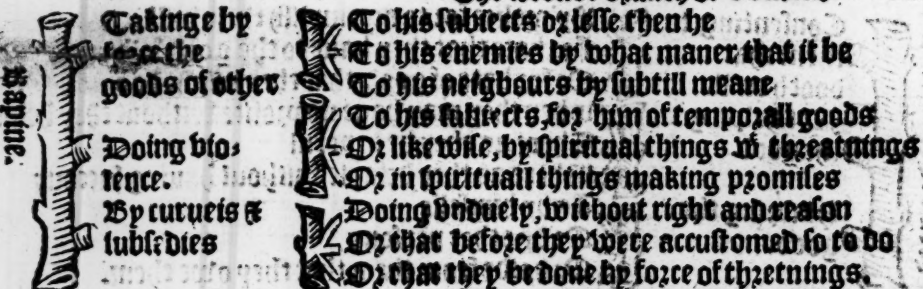 Rapine.
Takinge by
force the
goods of other
Doing vio-
lence.
By curueis &
subsedies
To his subiects or lesse then he
To his enemies by what maner that it be
To his neighbours by subtill meane
To his subiects, for him of temporall goods
Or likewise, by spiritual things wt threatnings
Or in spirituall things making promises
Doing vnduely, without right and reason
Or that before they were accustomed so to do
Or that they be done by force of thretnings.